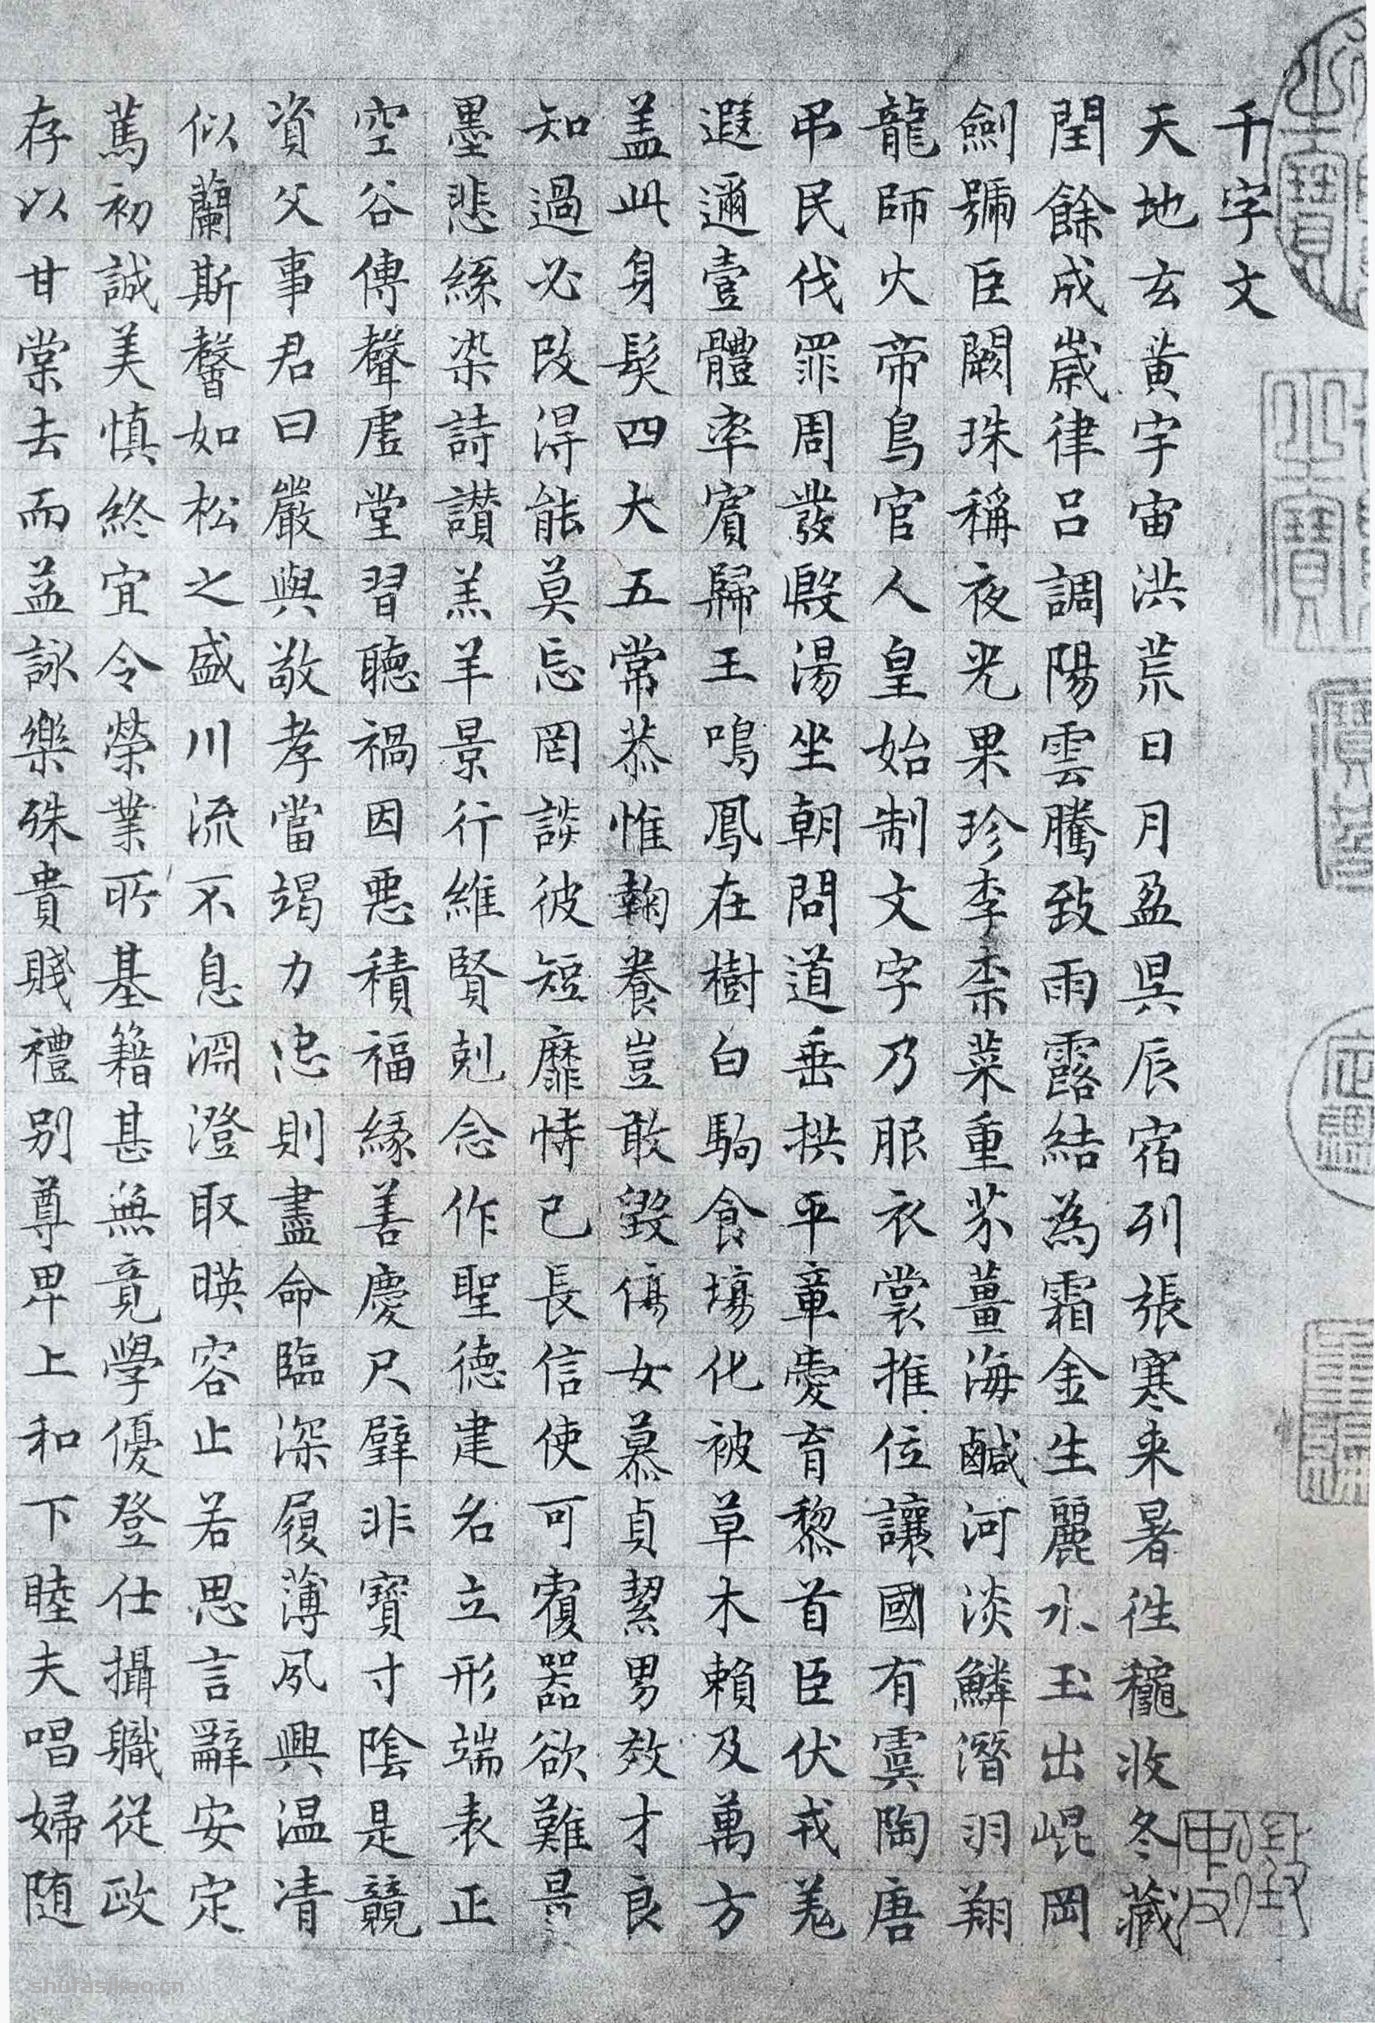 千字文
天地玄黄宇宙洪荒日月盈昃辰宿列張寒来暑往龝收冬藏
閏餘成歲律吕調陽雲騰致雨露結為霜金生麗水玉出崐岡
劍號臣闕珠稱夜光果珍李柰菜重芥薑海鹹河淡鱗潛羽翔
龍師火帝鳥官人皇始制文字乃服衣裳推位讓國有虞陶唐
弔民伐罪周發殷湯坐朝問道垂拱平章愛育黎首臣伏戎羌
遐邇壹體率賓歸王鳴鳳在樹白駒食場化被草木賴及萬方
盖此身髮四大五常恭惟鞠養豈敢毀傷女慕貞絜男效才良
知過必改得能莫忘罔談彼短靡恃己長信使可覆器欲難量
墨悲絲染詩讚羔羊景行維賢剋念作聖德建名立形端表正
空谷傳聲虛堂習聽禍因惡積福緣善慶尺璧非寶寸陰是競
資父事君曰嚴與敬孝當竭力忠則盡命臨深履薄夙興温凊
似蘭斯馨如松之盛川流不息淵澄取暎容止若思言辭安定
篤初誠美慎終宜令榮業所基籍甚無竟學優登仕攝職從政
存以甘棠去而益詠樂殊貴賤禮别尊卑上和下睦夫唱婦随